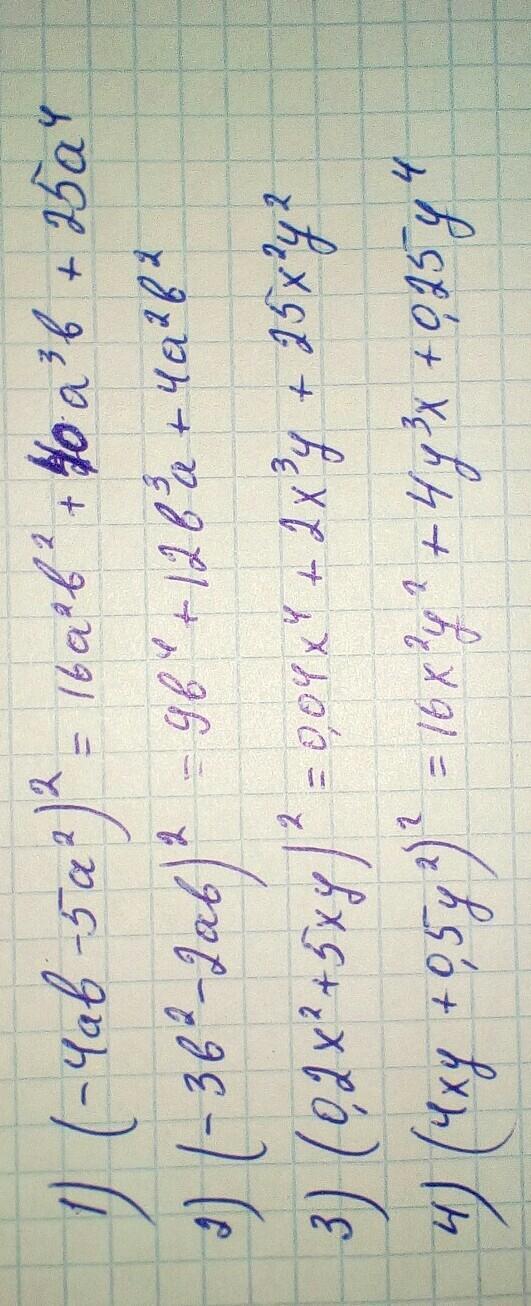 1) (-4ab - 5a²)² = 16a²b² + 40a³b + 25a⁴
2) (-3b² - 2ab)² = 9b⁴ + 12b³a + 4a²b²
3) (0,2x² + 5xy)² = 0,04x⁴ + 2x³y + 25x²y²
4) (4xy + 0,5y²)² = 16x²y² + 4y³x + 0,25y⁴